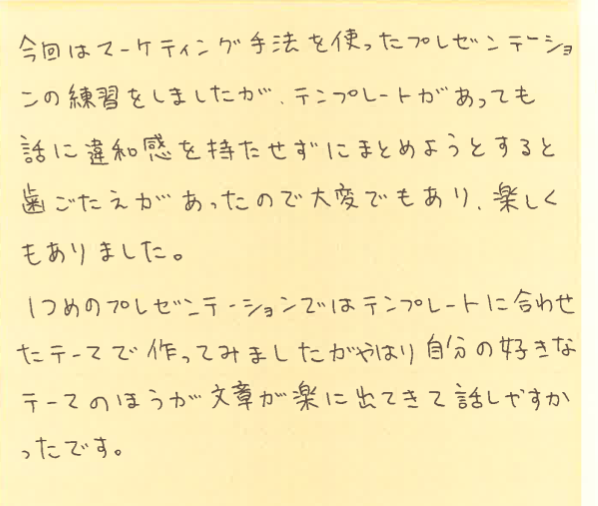 今回はマーケティング手法を使ったプレゼンテーショ
ンの練習をしましたが、テンプレートがあっても
話に違和感を持たせずにまとめようとすると
歯ごたえがあったので大変でもあり、楽しく
もありました。
1つめのプレゼンテーションではテンプレートに合わせ
たテーマで作ってみましたがやはり自分の好きな
テーマのほうが文章が楽に出てきて話しやすか
ったです。